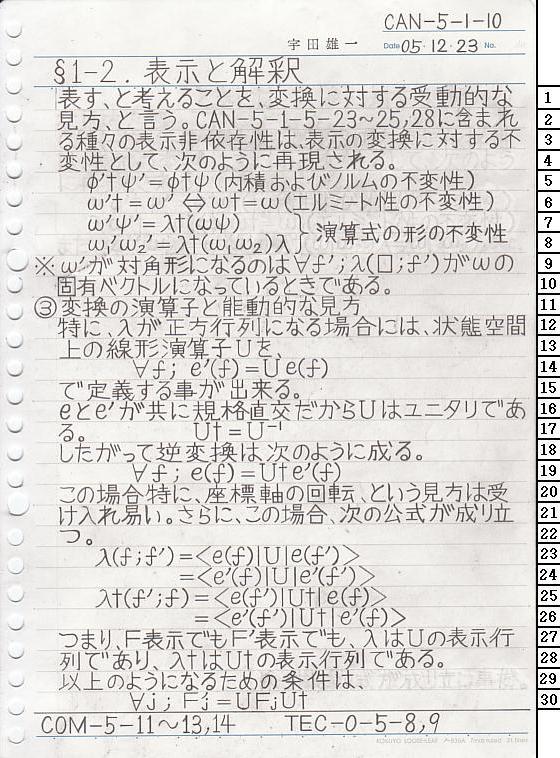 CAN-5-1-10
宇田雄一 Date 05・12・23 No.
§1-2. 表示と解釈
表す、と考えることを、変換に対する受動的な
見方、と言う。CAN-5-1-5-23~25,28に含まれ
る種々の表示非依存性は、表示の変換に対する不
変性として、次のように再現される。
φ'†ψ' = φ†ψ (内積およびノルムの不変性)
ω'† = ω' ⇔ ω† = ω (エルミート性の不変性)
ω'ψ' = λ†(ωψ)
ω₁'ω₂' = λ†(ω₁ω₂)λ } 演算式の形の不変性
※ ω'が対角形になるのは∀f';λ(□;f')がωの
固有ベクトルになっているときである。
③変換の演算子と能動的な見方
特に、λが正方行列になる場合には、状態空間
上の線形演算子Uを、
∀f; e'(f) = U e(f)
で定義する事が出来る。
eとe'が共に規格直交だからUはユニタリであ
る。 U† = U⁻¹
したがって逆変換は次のように成る。
∀f; e(f) = U†e'(f)
この場合特に、座標軸の回転、という見方は受
け入れ易い。さらに、この場合、次の公式が成り立
つ。
λ(f;f') = <e(f)|U|e(f')>
= <e'(f)|U|e'(f')>
λ†(f';f) = <e(f')|U†|e(f)>
= <e'(f')|U†|e'(f)>
つまり、F表示でもF'表示でも、λはUの表示行
列であり、λ†はU†の表示行列である。
以上のようになるための条件は、
∀j; F'j = UFjU†
COM-5-11~13,14 TEC-0-5-8,9
KOKUYO LOOSE-LEAF ノ-836A 7mm ruled 31 lines
1
2
3
4
5
6
7
8
9
10
11
12
13
14
15
16
17
18
19
20
21
22
23
24
25
26
27
28
29
30